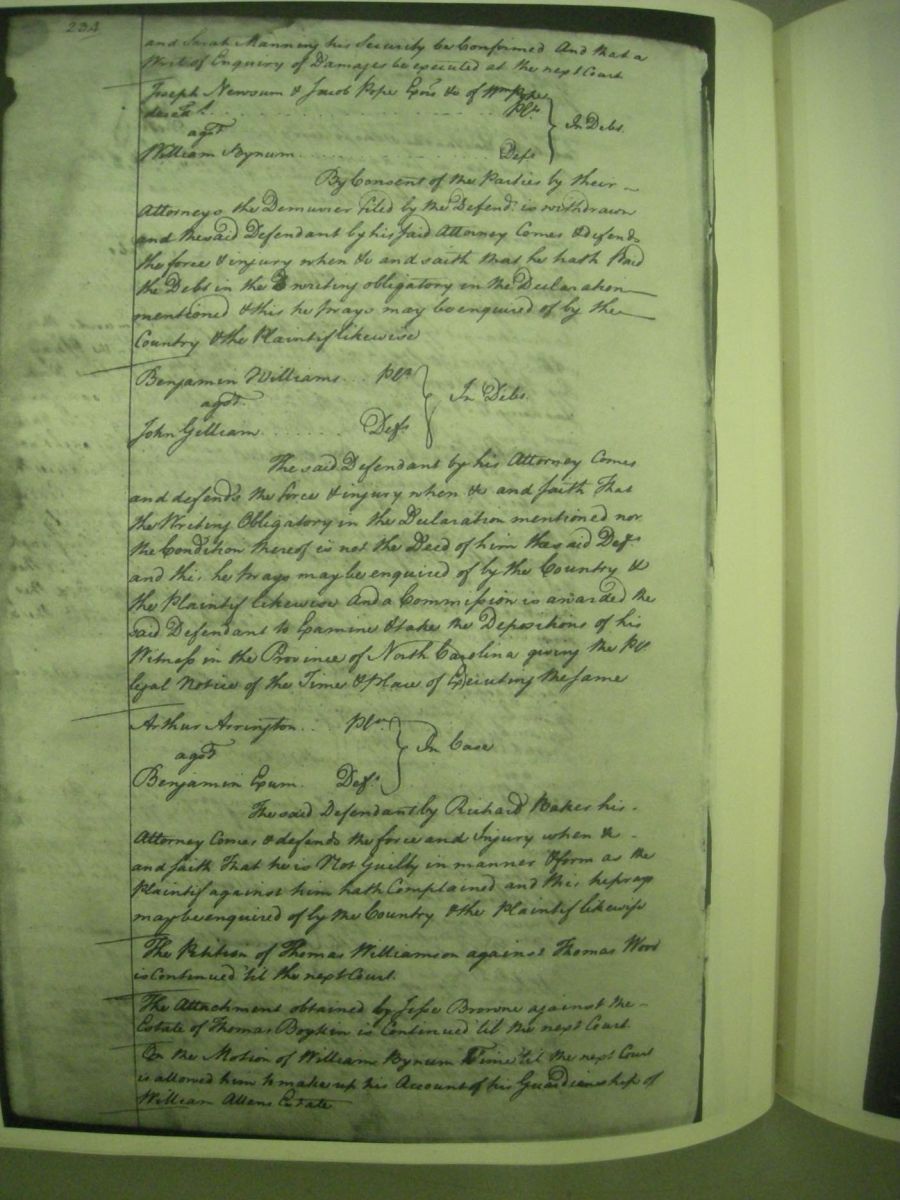 234
and Sarah Manning his Security be Confirmed And that a
Writ of Enquiry of Damages be executed at the next Court
Joseph Newsum & Jacob Pope Exors &c of Wm Pope
deced . . . Plts
agst
In Debt
William Bynum . . . Deft
By Consent of the Parties by their
Attorneys the Demurrer filed by the Defendt is withdrawn
and the said Defendant by his said Attorney Comes & defends
the force & injury when &c and saith that he hath Paid
the Debt in the writing obligatory in the Declaration
mentioned & this he prays may be enquired of by the
Country & the Plaintif likewise
Benjamin Williams . . Plt
agst
In Debt
John Gilliam . . . . . . Deft
The said Defendant by his Attorney Comes
and defends the force & injury when &c and saith That
the Writing Obligatory in the Declaration mentioned nor
the Condition thereof is not the Deed of him the said Deft
and this he prays may be enquired of by the Country &
the Plaintif likewise And a Commission is awarded the
said Defendant to Examine & take the Depositions of his
Witness in the Province of North Carolina giving the Plt
legal Notice of the Time & Place of Executing the same
Arthur Arrington . . Plt
agst
In Case
Benjamin Exum Deft
The said Defendant by Richard Baker his
Attorney Comes & defends the force and Injury when &c
and saith That he is Not Guilty in manner & form as the
Plaintif against him hath Complained and this he prays
may be enquired of by the Country & the Plaintif likewise
The Petition of Thomas Williamson against Thomas Wood
is Continued til the next Court.
The Attachment obtained by Jesse Browne against the
Estate of Thomas Boykin is Continued til the next Court.
On the Motion of William Bynum Time til the next Court
is allowed him to make up his Account of his Guardianship of
William Allens Estate